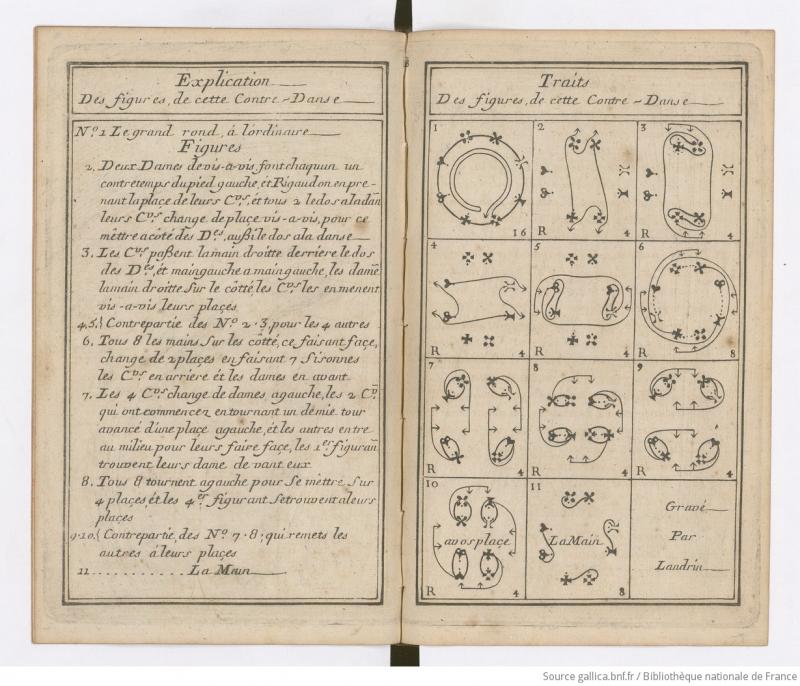 Explication
Des figures, de cette Contre-Danse
N.o 1 Le grand rond, á l'ordinaire
Figures
2. Deux Dames de vis-a-vis font chaquun un
contretemps du pied gauche, ét Rigaudon en pre-
nant la plaçe de leurs C.rs, ét tous 2 le dos a la dañ
leurs C.rs change de plaçe vis-a-vis, pour ce
mêttre a côté des D.es, außi le dos a la danse
3. Les C.rs paßent la main droitte derriere le dos
des D.es, ét main gauche a main gauche, les damẽ
la main droitte sur le côtté, les C.rs les enmenent
vis-a-vis leurs plaçes
4.5.{ Contrepartie des N.o 2.3, pour les 4 autres
6. Tous 8 les mains sur les côtté, ce faisant façe,
change de 2 plaçes en faisant 7 sisonnes
les C.rs en arriere ét les dames en avant
7. Les 4 C.rs change de dames a gauche, les 2 C.rs
qui ont commencez en tournant un démie tour
avancé d'une plaçe a gauche, ét les autres entre
au milieu pour leurs faire façe, les 1.ers figurañ
trouvent leurs dame devant eux
8. Tous 8 tournent a gauche pour se mettre sur
4 plaçes, ét les 4 1.er figurant se trouvent a leurs
plaçes
9.10.{ Contrepartie, des N.o 7.8; qui remets les
autres á leurs plaçes
11 ............ La Main
Traits
Des figures, de cette Contre-Danse
1
16
2
R
4
3
R
4
4
R
4
5
R
4
6
R
8
7
R
4
8
R
4
9
R
4
10
a vos plaçe
R
4
11
La Main
8
Gravé
Par
Landrin
Source gallica.bnf.fr / Bibliothèque nationale de France